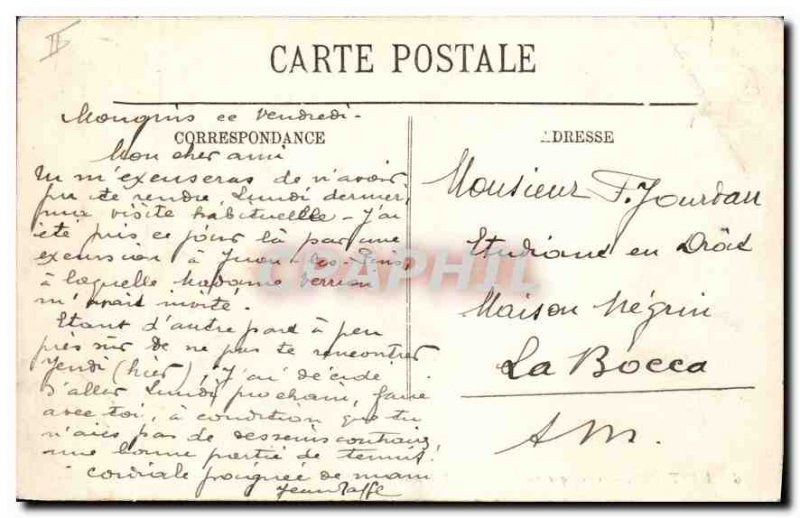 II
CARTE POSTALE
Mougins ce Vendredi-
CORRESPONDANCE
Mon cher ami
Tu m'excuseras de n'avoir
pu te rendre, Lundi dernier,
ma visite habituelle - J'ai
été pris ce jour là par une
excursion à Juan-les-Pins
à laquelle Madame
m'avait invité.
Etant d'autre part à peu
près sûr de ne pas te rencontrer
Jeudi (hier), j'ai décidé
d'aller Lundi prochain, faire
avec toi, à condition que tu
n'aies pas de desseins contraires,
une bonne partie de tennis!
Cordiale poignée de main
Jean
ADRESSE
Monsieur F. Jourdan
Etudiant en Droit
Maison Négrin
La Bocca
AM.
CPAPHIL